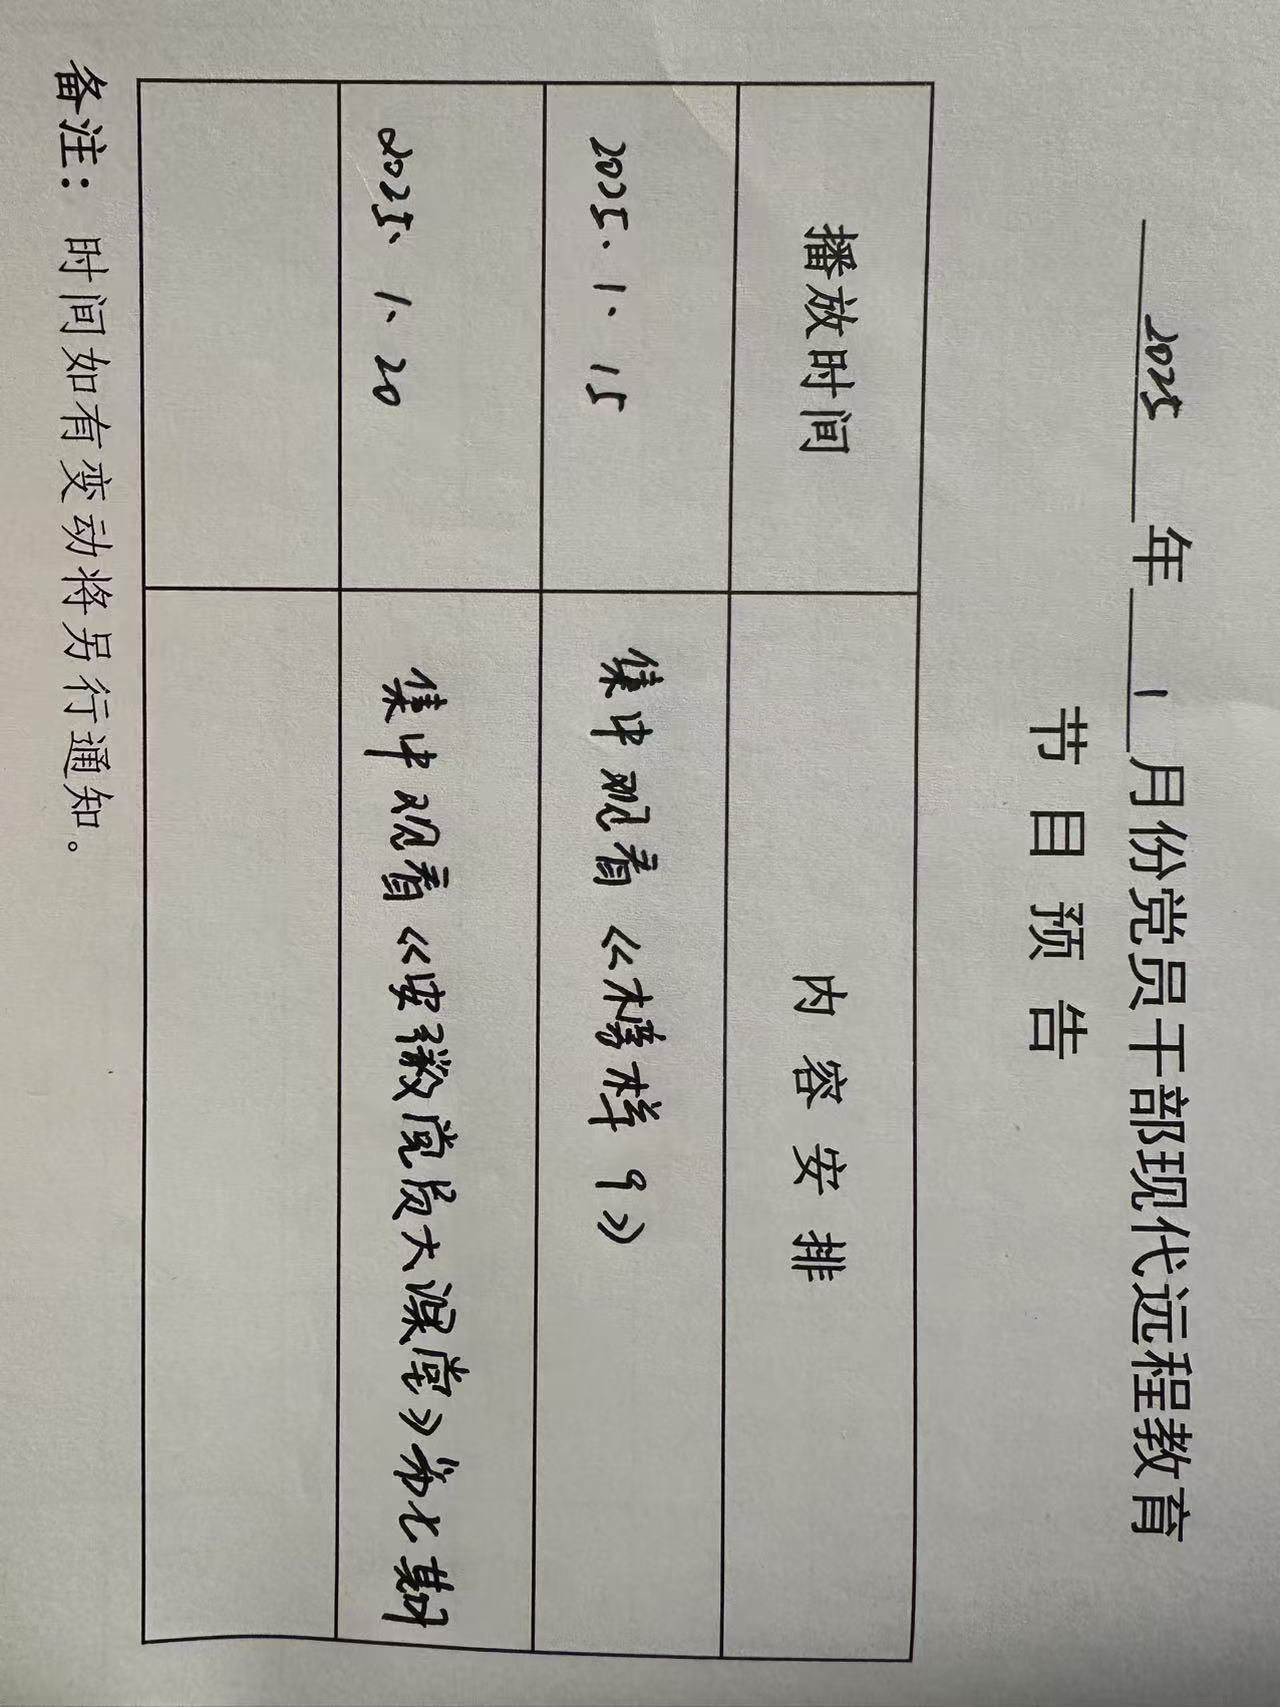 2025年1月份党员干部现代远程教育
节目预告
播放时间 内容安排
2025.1.15 集中观看《榜样9》
2025.1.20 集中观看《安徽党员大课堂》第七期
备注：时间如有变动将另行通知。